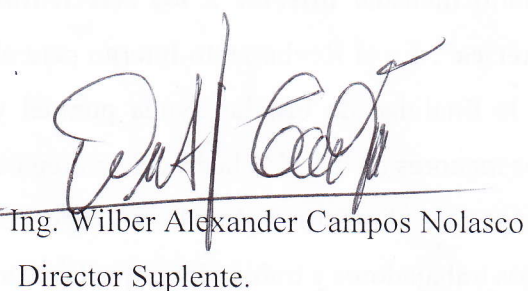 Ing. Wilber Alexander Campos Nolasco
Director Suplente.